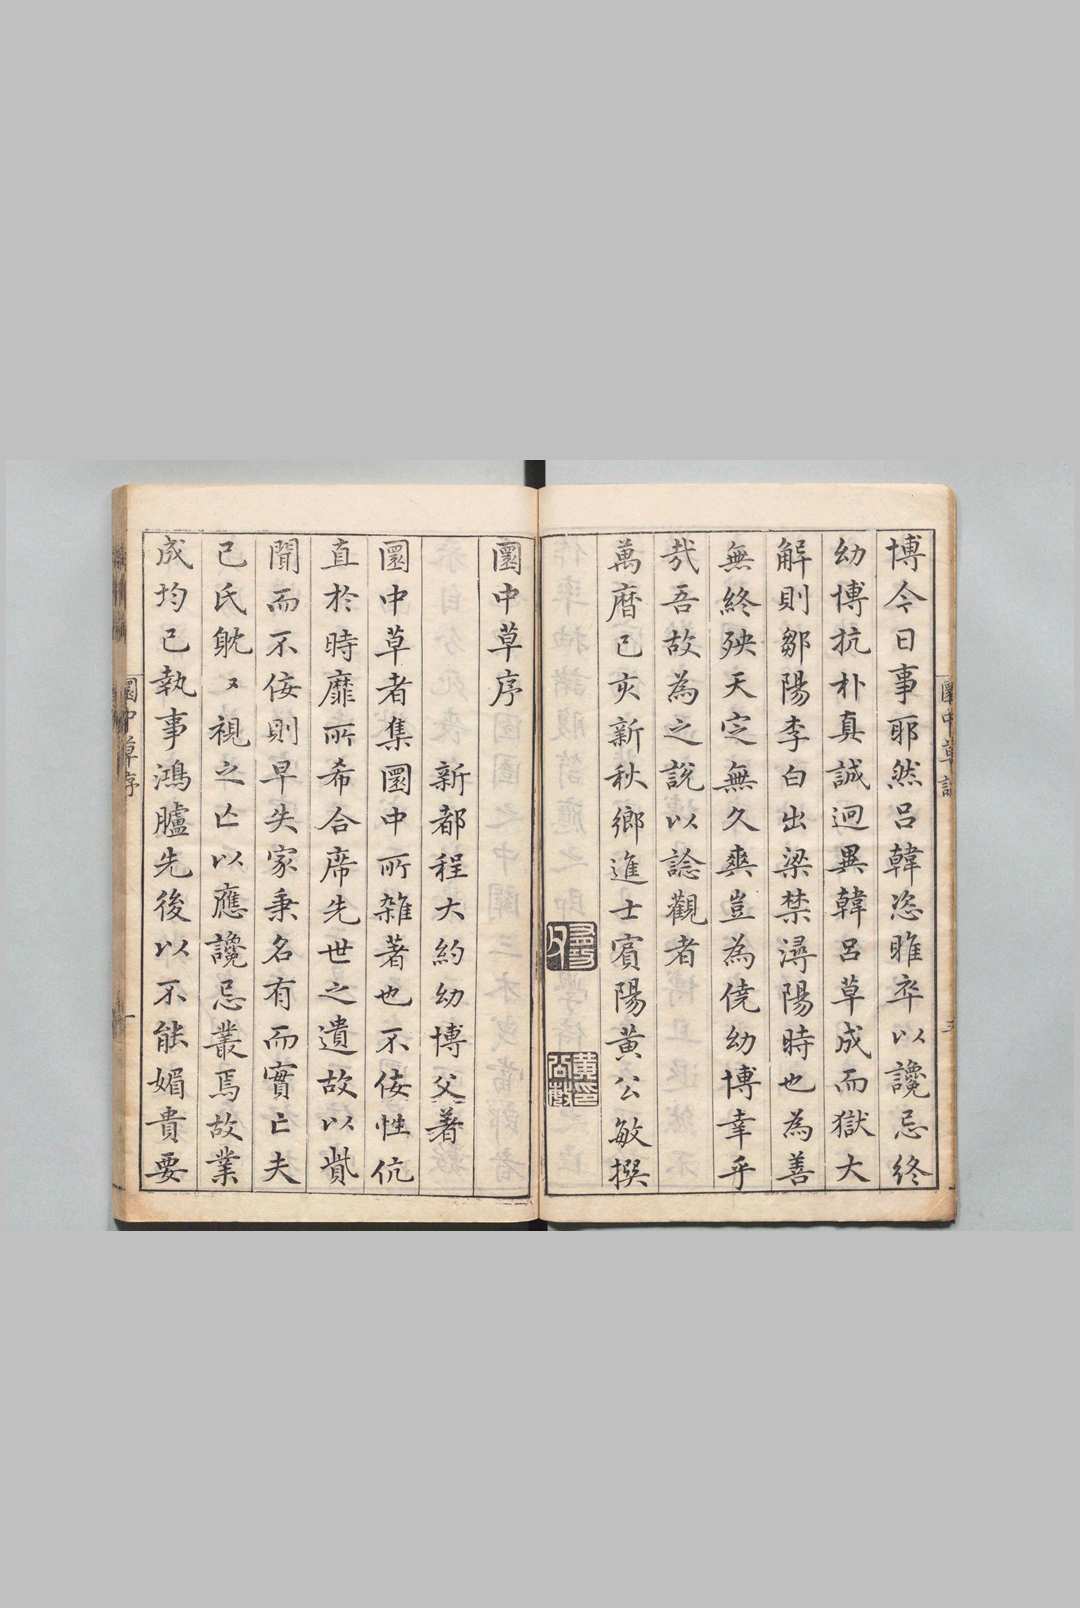 博今日事耶然呂韓恣睢卒以讒忌終
幼博抗朴真誠迥異韓呂草成而獄大
解則鄒陽李白出梁禁潯陽時也為善
無終殃天定無久爽豈為僥幼博幸乎
哉吾故為之說以諗觀者
萬曆己亥新秋鄉進士賓陽黃公敏撰
圜中草序
新都程大約幼博父著
圜中草者集圜中所雜著也不佞性伉
直於時靡所希合席先世之遺故以貲
聞而不佞則早失家秉名有而實亡夫
己氏眈〻視之亡以應讒忌叢焉故業
成均已執事鴻臚先後以不能媚貴要
圜中草序
一